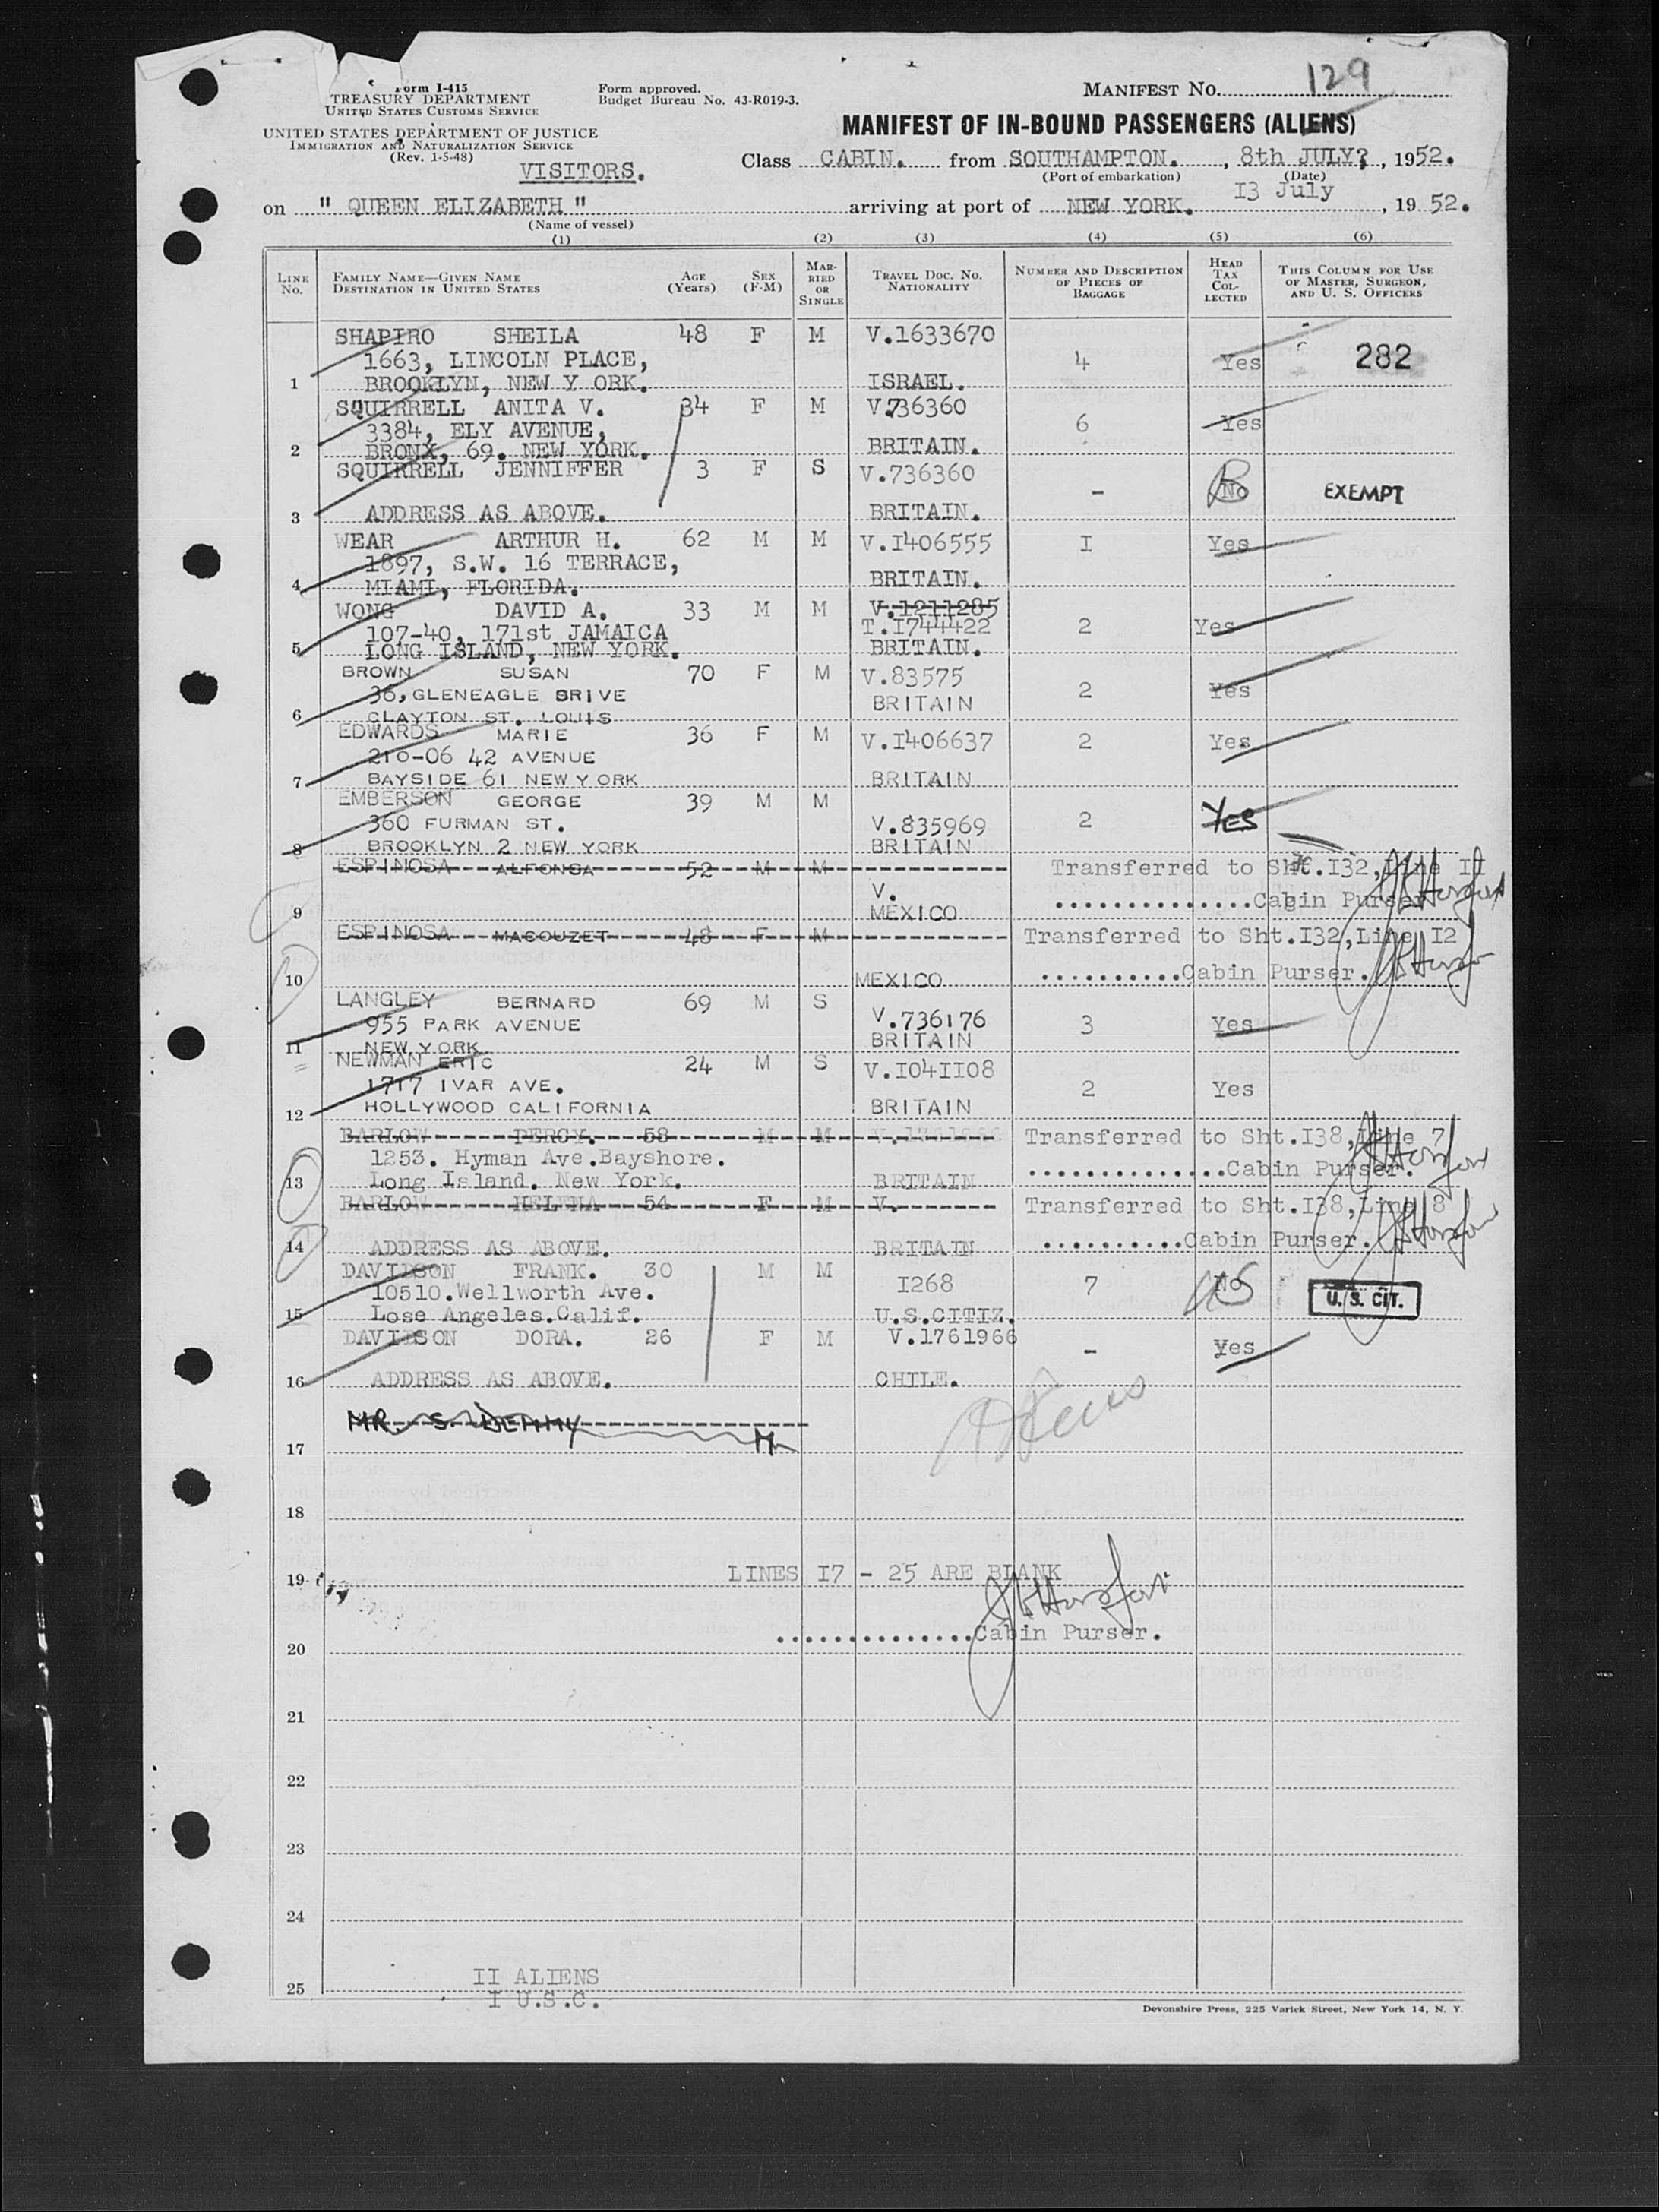 Form I-415
TREASURY DEPARTMENT
UNITED STATES CUSTOMS SERVICE
UNITED STATES DEPARTMENT OF JUSTICE
IMMIGRATION AND NATURALIZATION SERVICE
(Rev. 1-5-48)
VISITORS.
Form approved.
Budget Bureau No. 43-R019-3.
MANIFEST NO. 129
MANIFEST OF IN-BOUND PASSENGERS (ALIENS)
Class CABIN. from SOUTHAMPTON., 8th JULY?, 1952.
(Port of embarkation) (Date)
on " QUEEN ELIZABETH " arriving at port of NEW YORK. I3 July, 1952.
(Name of vessel)
(1) (2) (3) (4) (5) (6)
LINE No. FAMILY NAME—GIVEN NAME DESTINATION IN UNITED STATES AGE (Years) SEX (F-M) MARRIED OR SINGLE TRAVEL DOC. NO. NATIONALITY NUMBER AND DESCRIPTION OF PIECES OF BAGGAGE HEAD TAX COLLECTED THIS COLUMN FOR USE OF MASTER, SURGEON, AND U. S. OFFICERS
SHAPIRO SHEILA 48 F M V.1633670
1663, LINCOLN PLACE, 4 Yes 282
1 BROOKLYN, NEW Y ORK. ISRAEL.
SQUIRRELL ANITA V. 34 F M V.736360
3384, ELY AVENUE, 6 Yes
2 BRONX, 69. NEW YORK. BRITAIN.
SQUIRRELL JENNIFFER 3 F S V.736360
- No EXEMPT
3 ADDRESS AS ABOVE. BRITAIN.
WEAR ARTHUR H. 62 M M V.I406555 I Yes
1897, S.W. 16 TERRACE,
4 MIAMI, FLORIDA. BRITAIN.
WONG DAVID A. 33 M M V.1211285
107-40, 171st JAMAICA T.I744422 2 Yes
5 LONG ISLAND, NEW YORK. BRITAIN.
BROWN SUSAN 70 F M V.83575
36, GLENEAGLE BRIVE BRITAIN 2 Yes
6 CLAYTON ST. LOUIS
EDWARDS MARIE 36 F M V.I406637 2 Yes
210-06 42 AVENUE
7 BAYSIDE 61 NEW YORK BRITAIN
EMBERSON GEORGE 39 M M
360 FURMAN ST. V.835969 2 YES
8 BROOKLYN 2 NEW YORK BRITAIN
ESPINOSA ALFONSA 52 M M Transferred to Sht.I32,Line II
V. ..............Cabin Purser
9 MEXICO
ESPINOSA MACOUZET 48 F M Transferred to Sht.I32,Line I2
10 MEXICO ..........Cabin Purser.
LANGLEY BERNARD 69 M S
955 PARK AVENUE V.736176 3 Yes
11 NEW YORK BRITAIN
NEWMAN ERIC 24 M S V.I04II08
1717 IVAR AVE. 2 Yes
12 HOLLYWOOD CALIFORNIA BRITAIN
BARLOW PERCY. 58 M M Transferred to Sht.I38,Line 7
1253. Hyman Ave.Bayshore. ..............Cabin Purser.
13 Long Island. New York. BRITAIN
BARLOW HELENA 54 F M V. Transferred to Sht.I38,Line 8
14 ADDRESS AS ABOVE. BRITAIN ..........Cabin Purser.
DAVIDSON FRANK. 30 M M I268 7 No
10510.Wellworth Ave. U. S. CIT.
15 Lose Angeles.Calif. U.S.CITIZ.
DAVIDSON DORA. 26 F M V.1761966 - Yes
16 ADDRESS AS ABOVE. CHILE.
MR. S. M
17
18
LINES I7 - 25 ARE BLANK
19
..............Cabin Purser.
20
21
22
23
24
II ALIENS
25
I U.S.C.
Devonshire Press, 225 Varick Street, New York 14, N. Y.